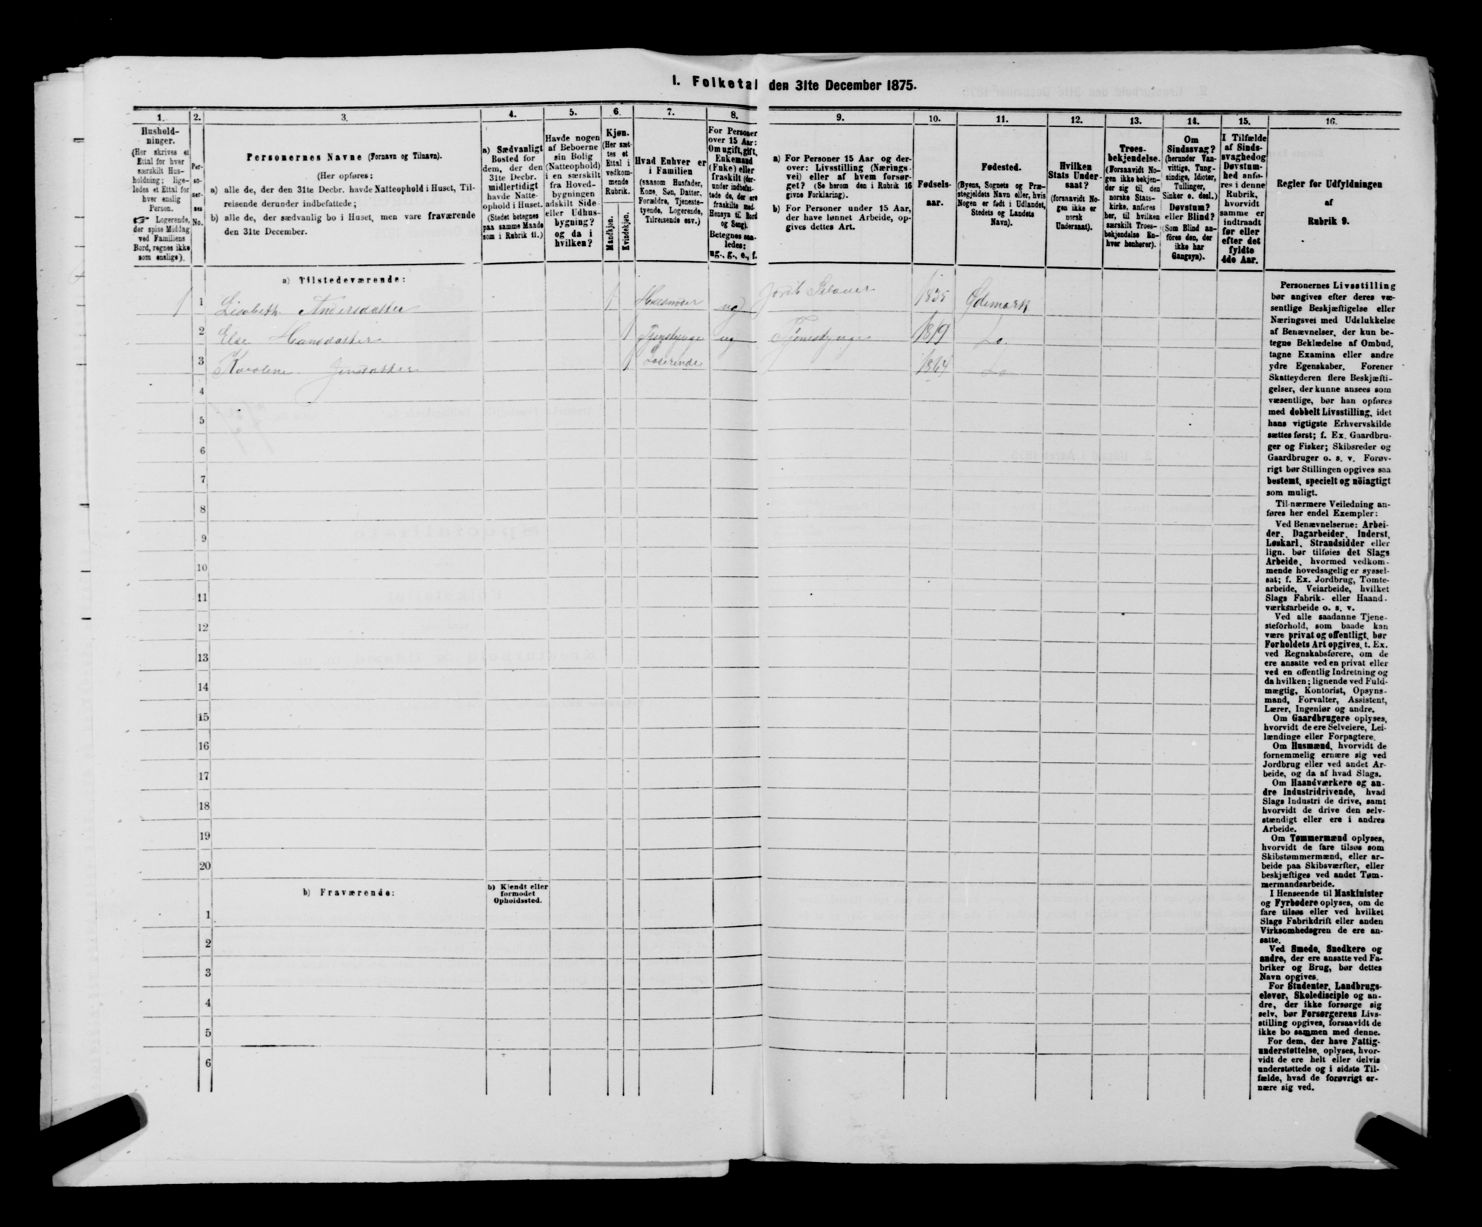 I. Folketal den 31te December 1875.
1.
Hushold-
ninger.
(Her skrives et
Ettal for hver
særskilt Hus-
holdning; lige-
ledes et Ettal for
hver enslig
Person.
☞ Logerende,
der spise Middag
ved Familiens
Bord, regnes ikke
som enslige).
2.
Per-
son-
ernes
No.
3.
Personernes Navne (Fornavn og Tilnavn).
(Her opføres:
a) alle de, der den 31te Decbr. havde Natteophold i Huset, Til-
reisende derunder indbefattede;
b) alle de, der sædvanlig bo i Huset, men vare fraværende
den 31te December.
4.
a) Sædvanligt
Bosted for
dem, der den
31te Decbr.
midlertidigt
havde Natte-
ophold i Huset.
(Stedet betegnes
paa samme Maade
som i Rubrik 11.)
5.
Havde nogen
af Beboerne
sin Bolig
(Natteophold)
i en særskilt
fra Hoved-
bygningen
adskilt Side-
eller Udhus-
bygning?
og da i
hvilken?
6.
Kjøn.
(Her sæt-
tes et
Ettal i
vedkom-
mende
Rubrik.
Mandkjøn.
Kvindekjøn.
7.
Hvad Enhver er
i Familien
(saasom Husfader,
Kone, Søn, Datter,
Forældre, Tjeneste-
tyende, Logerende,
Tilreisende osv.)
8.
For Personer
over 15 Aar:
Om ugift, gift,
Enkemand
(Enke) eller
fraskilt (her-
under indbefat-
tede de, der ere
fraskilte med
Hensyn til Bord
og Seng).
Betegnes saa-
ledes:
ug., g., e., f.
9.
a) For Personer 15 Aar og der-
over: Livsstilling (Nærings-
vei) eller af hvem forsør-
get? (Se herom den i Rubrik 16
givne Forklaring).
b) For Personer under 15 Aar,
der have lønnet Arbeide, op-
gives dettes Art.
10.
Fødsels-
aar.
11.
Fødested.
(Byens, Sognets og Præ-
stegjeldets Navn eller, hvis
Nogen er født i Udlandet,
Stedets og Landets
Navn).
12.
Hvilken
Stats Under-
saat?
(forsaavidt No-
gen ikke er
norsk
Undersaat).
13.
Troes-
bekjendelse.
(Forsaavidt No-
gen ikke bekjen-
der sig til den
norske Stats-
kirke, anføres
her, til hvilken
særskilt Troes-
bekjendelse En-
hver henhører).
14.
Om
Sindssvag?
(herunder Van-
vittige, Tung-
sindige, Idioter,
Tullinger,
Sinker o. desl.)
Døvstum?
eller Blind?
(Som Blind an-
føres den, der
ikke har
Gangsyn).
15.
I Tilfælde
af Sinds-
svaghed og
Døvstum-
hed anfø-
res i denne
Rubrik,
hvorvidt
samme er
indtraadt
før eller
efter det
fyldte
4de Aar.
16.
Regler for Udfyldningen
af
Rubrik 9.
a) Tilstedeværende:
1 1 Lisabeth Andersdatter 1 Husmoer ug 1835 Ødemark
2 Else Hansdatter 1 ug 1819 Do
3 Karoline Jensdatter 1 Loserende 1864 Do
4
5
6
7
8
9
10
11
12
13
14
15
16
17
18
19
20
b) Fraværende:
b) Kjendt eller
formodet
Opholdssted.
1
2
3
4
5
6
Personernes Livsstilling
bør angives efter deres væ-
sentlige Beskjæftigelse eller
Næringsvei med Udelukkelse
af Benævnelser, der kun be-
tegne Beklædelse af Ombud,
tagne Examina eller andre
ydre Egenskaber. Forener
Skatteyderen flere Beskjæfti-
gelser, der kunne ansees som
væsentlige, bør han opføres
med dobbelt Livsstilling, idet
hans vigtigste Erhvervskilde
sættes først; f. Ex. Gaardbru-
ger og Fisker; Skibsreder og
Gaardbruger o. s. v. Forøv-
rigt bør Stillingen opgives saa
bestemt, specielt og nöiagtigt
som muligt.
Til nærmere Veiledning an-
føres her endel Exempler:
Ved Benævnelserne: Arbei-
der, Dagarbeider, Inderst,
Løskarl, Strandsidder eller
lign. bør tilføies det Slags
Arbeide, hvormed vedkom-
mende hovedsagelig er syssel-
sat; f. Ex. Jordbrug, Tomte-
arbeide, Veiarbeide, hvilket
Slags Fabrik- eller Haand-
værksarbeide o. s. v.
Ved alle saadanne Tjene-
steforhold, som baade kan
være privat og offentligt, bør
Forholdets Art opgives, t. Ex.
ved Regnskabsførere, om de
ere ansatte ved en privat eller
ved en offentlig Indretning og
da hvilken; lignende ved Fuld-
mægtig, Kontorist, Opsyns-
mand, Forvalter, Assistent,
Lærer, Ingeniør og andre.
Om Gaardbrugere oplyses,
hvorvidt de ere Selveiere, Lei-
lændinge eller Forpagtere.
Om Husmænd, hvorvidt de
fornemmelig ernære sig ved
Jordbrug eller ved andet Ar-
beide, og da af hvad Slags.
Om Haandværkere og an-
dre Industridrivende, hvad
Slags Industri de drive, samt
hvorvidt de drive den selv-
stændigt eller ere i andres
Arbeide.
Om Tømmermænd oplyses,
hvorvidt de fare tilsøs som
Skibstømmermænd, eller ar-
beide paa Skibsværfter, eller
beskjæftiges ved andet Tøm-
mermandsarbeide.
I Henseende til Maskinister
og Fyrbødere oplyses, om de
fare tilsøs eller ved hvilket
Slags Fabrikdrift eller anden
Virksomhedsgren de ere an-
satte.
Ved Smede, Snedkere og
andre, der ere ansatte ved Fa-
briker og Brug, bør dettes
Navn opgives.
For Studenter, Landbrugs-
elever, Skoledisciple og an-
dre, der ikke forsørge sig
selv, bør Forsørgerens Livs-
stilling opgives, forsaavidt de
ikke bo sammen med denne.
For dem, der have Fattig-
understøttelse, oplyses, hvor-
vidt de ere helt eller delvis
understøttede og i sidste Til-
fælde, hvad de forøvrigt er-
nære sig ved.